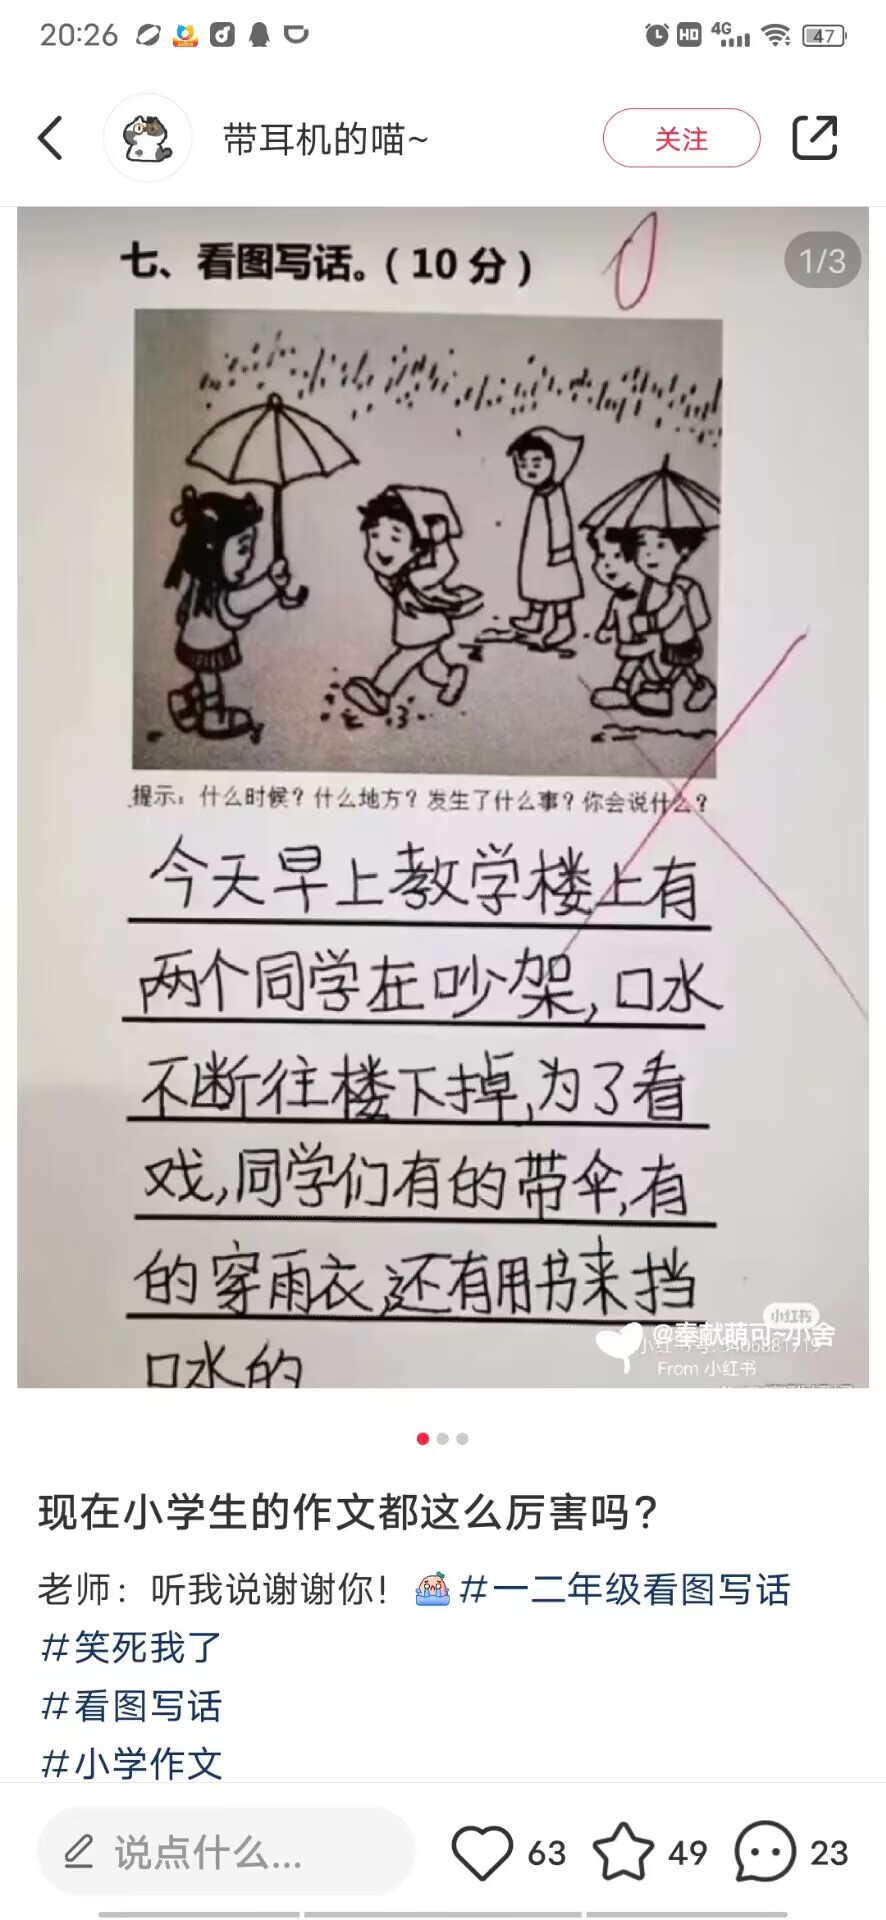 20:26
HD 4G 47
带耳机的喵~
关注
1/3
七、看图写话。(10 分)
0
提示：什么时候？什么地方？发生了什么事？你会说什么？
今天早上教学楼上有
两个同学在吵架,口水
不断往楼下掉,为了看
戏,同学们有的带伞,有
的穿雨衣,还有用书来挡
口水的
小红书
@奉献萌可~小舍
From 小红书
现在小学生的作文都这么厉害吗？
老师：听我说谢谢你！#一二年级看图写话
#笑死我了
#看图写话
#小学作文
说点什么...
63
49
23